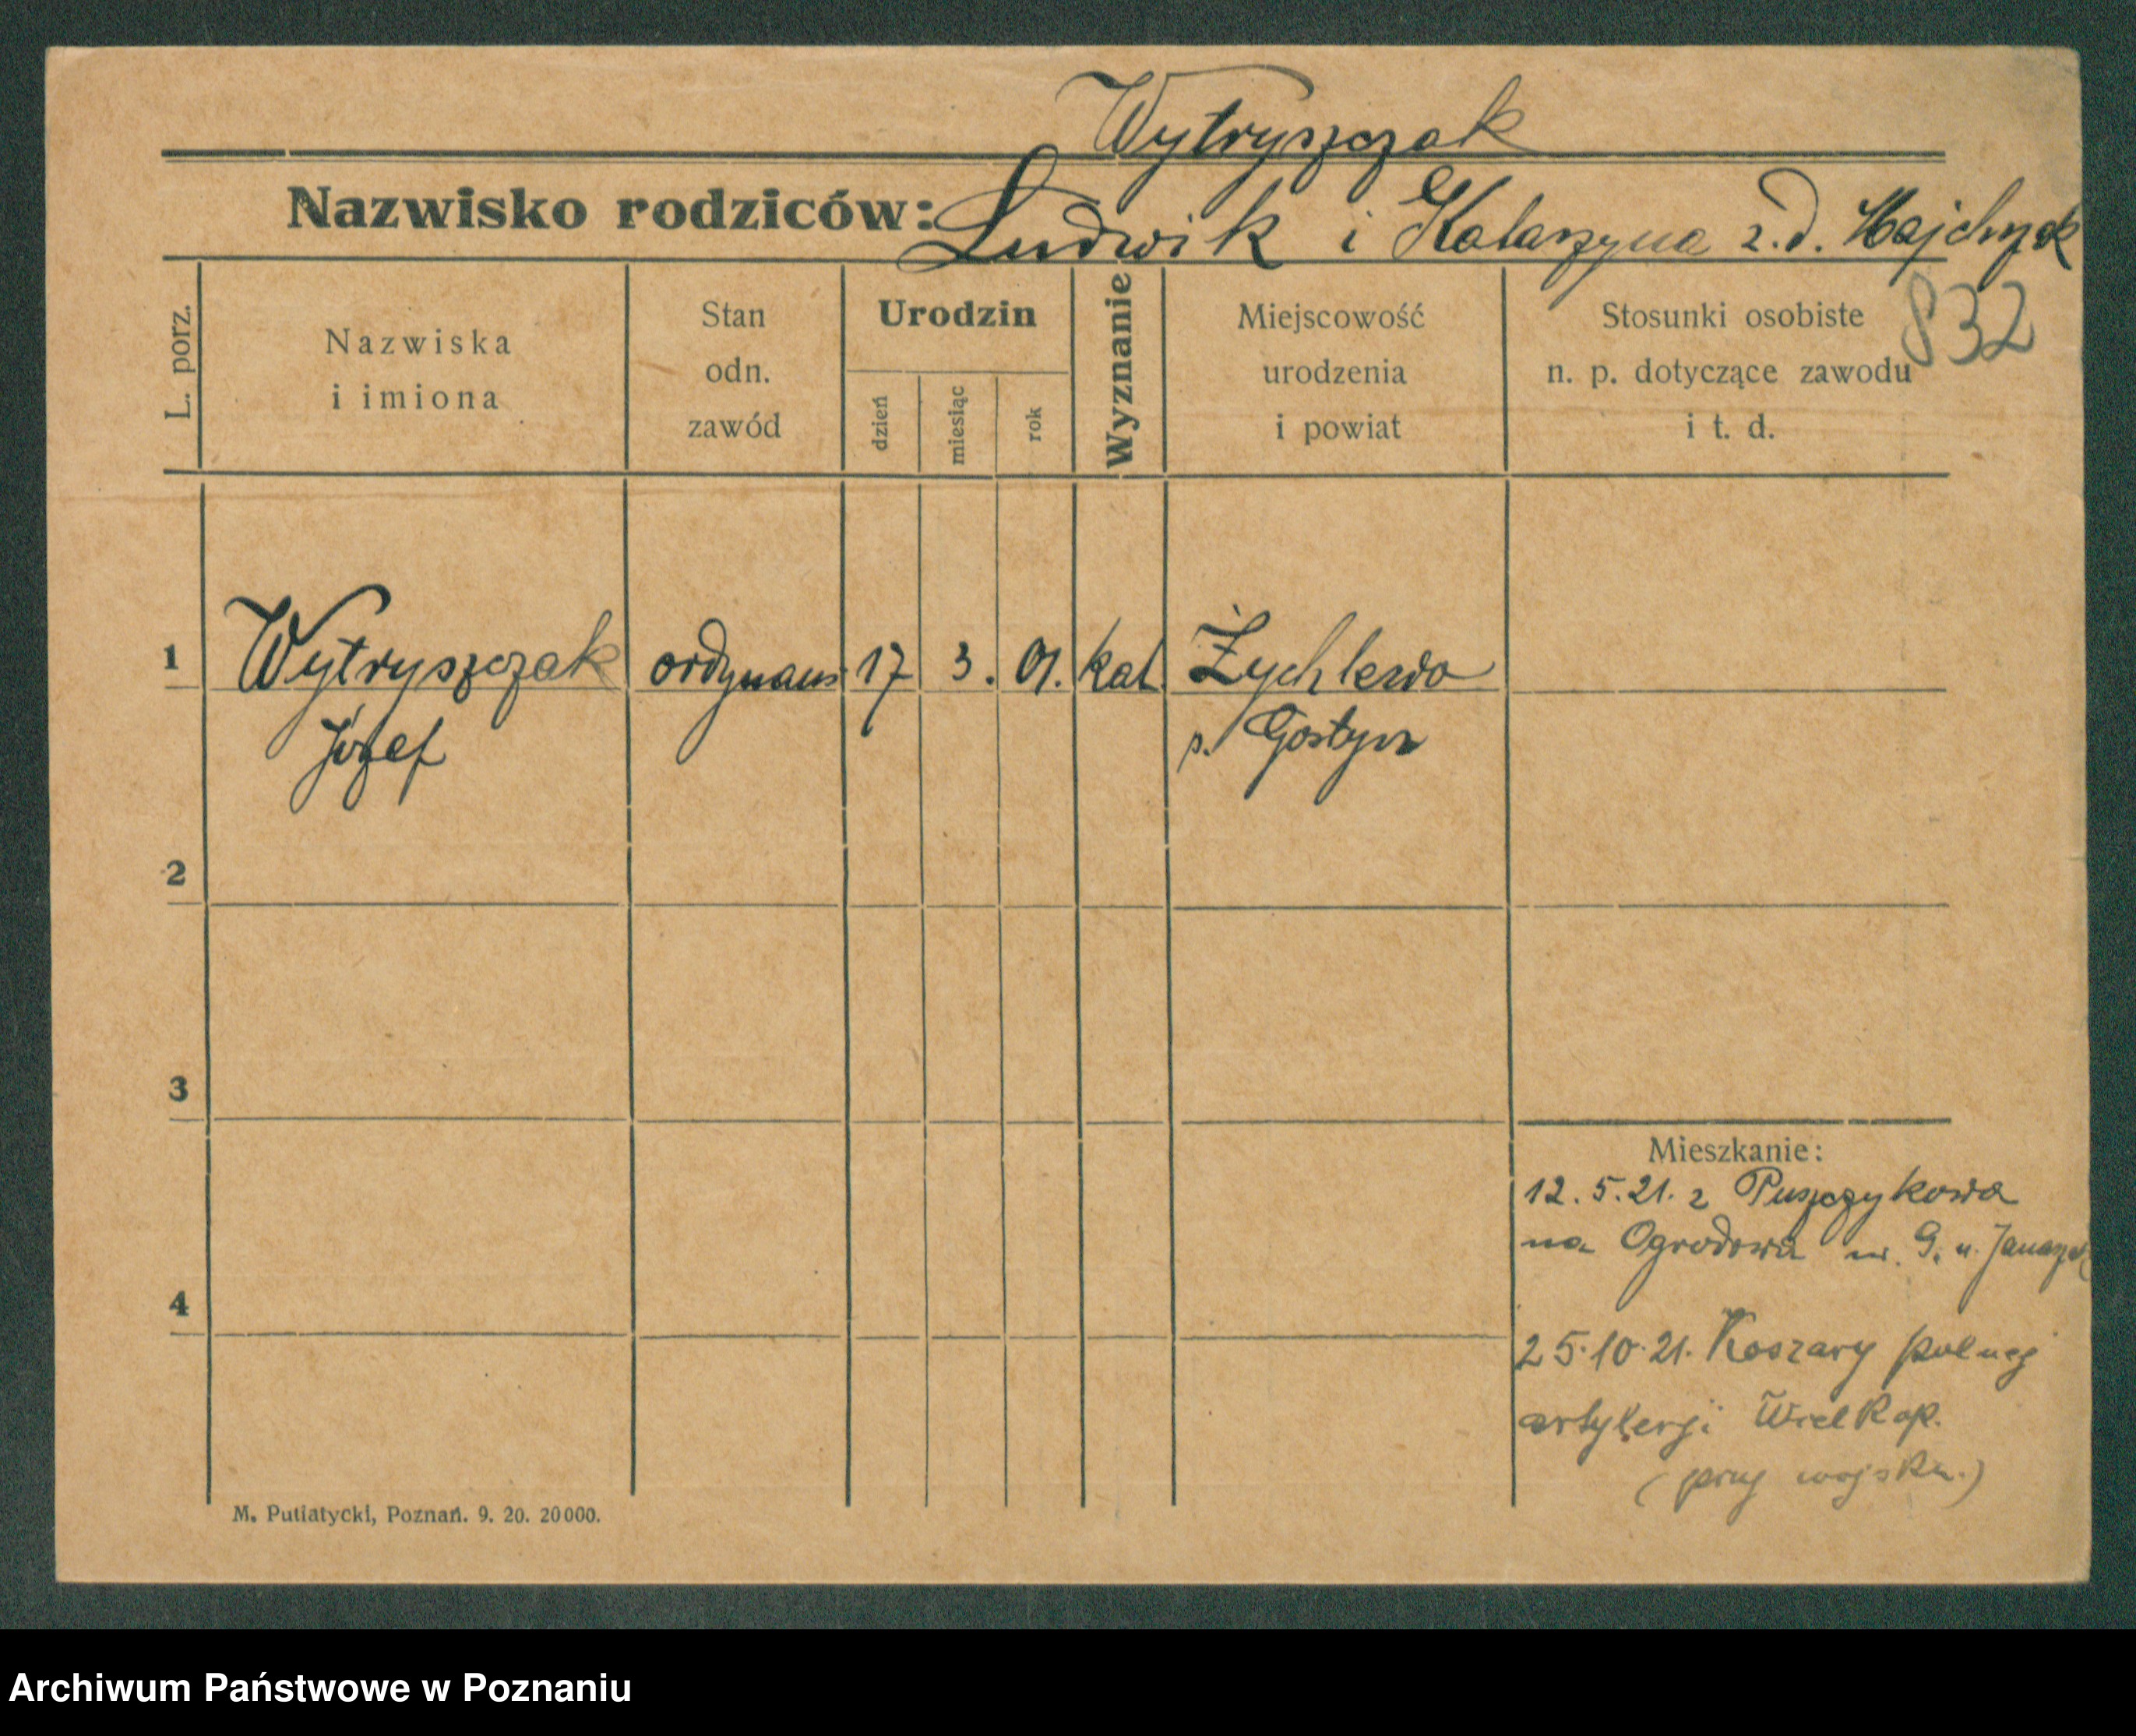 Wytryszczak
Nazwisko rodziców: Ludwik i Katarzyna z. d. Majchrzak
832
L. porz.
Nazwiska
i imiona
Stan
odn.
zawód
Urodzin
dzień
miesiąc
rok
Wyznanie
Miejscowość
urodzenia
i powiat
Stosunki osobiste
n. p. dotyczące zawodu
i t. d.
1 Wytryszczak ordynans 17 3. 01. kat. Żychlewo
Józef p. Gostyn
2
3
Mieszkanie:
12. 5. 21. z Puszczykowa
na Ogrodowa nr. 9. u.
4
25. 10. 21. Koszary polnej
artylerji Wielkop.
(przy wojsku.)
M. Putiatycki, Poznań. 9. 20. 20000.
Archiwum Państwowe w Poznaniu